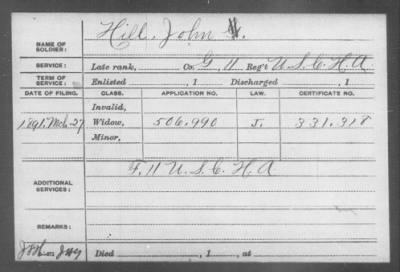 NAME OF SOLDIER: Hill, John
SERVICE: Late rank, Co. G, 11 Reg't U.S.C.H.A
TERM OF SERVICE: Enlisted , 1 Discharged , 1
DATE OF FILING. CLASS. APPLICATION NO. LAW. CERTIFICATE NO.
Invalid,
1891, Mch. 27 Widow, 506.990 J. 331.318
Minor,
ADDITIONAL SERVICES: F. 11 U.S.C.H.A
REMARKS:
Died , 1 , at